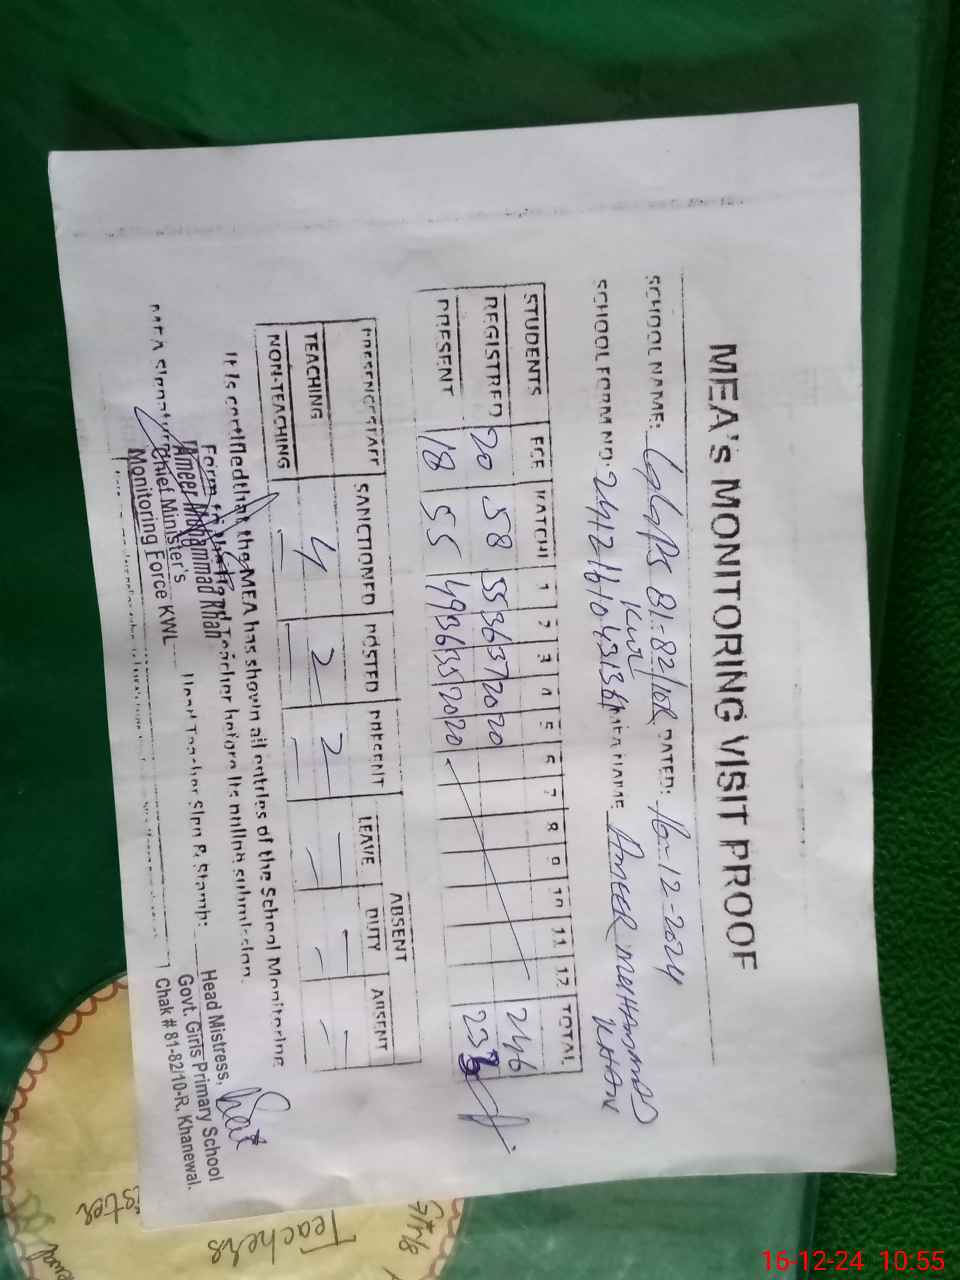 MEA'S MONITORING VISIT PROOF
SCHOOL NAME: GGPS 81-82/10R DATED: 16-12-2024
KWL
SCHOOL FORM NO: MEA NAME AMEER MUHAMMAD
KHAN
STUDENTS ECE KATCHI 1 2 3 4 5 6 7 8 9 10 11 12 TOTAL
REGISTRED 20 58 55 36 37 20 20 246
PRESENT 18 55 49 36 35 20 20
ABSENT
PRESENCE STAFF SANCTIONED POSTED PRESENT LEAVE DUTY ABSENT
TEACHING 4 2 2 — — —
NON-TEACHING — — — — — —
It is certified that the MEA has shown all entries of the School Monitoring
Form to the Head Teacher before its online submission.
Ameer Muhammad Khan
MEA Signature Chief Minister's Head Teacher Sign & Stamp:
Monitoring Force KWL
Head Mistress,
Govt. Girls Primary School
Chak # 81-82/10-R, Khanewal.
Girls
Teachers
16-12-24 10:55